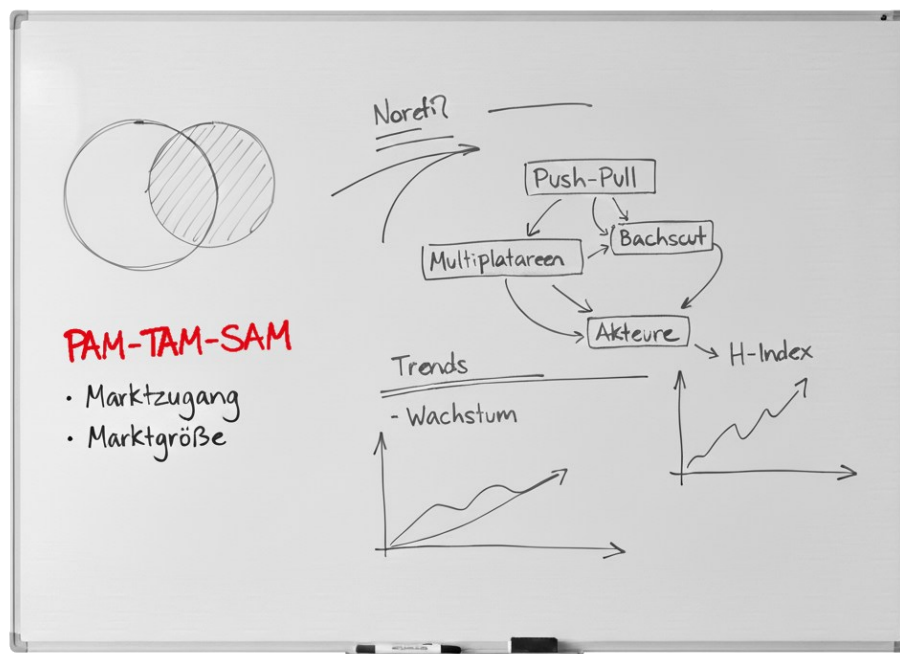 Noreti?
Push-Pull
Bachscut
Multiplatareen
Akteure
H-Index
PAM-TAM-SAM
• Marktzugang
• Marktgröße
Trends
- Wachstum